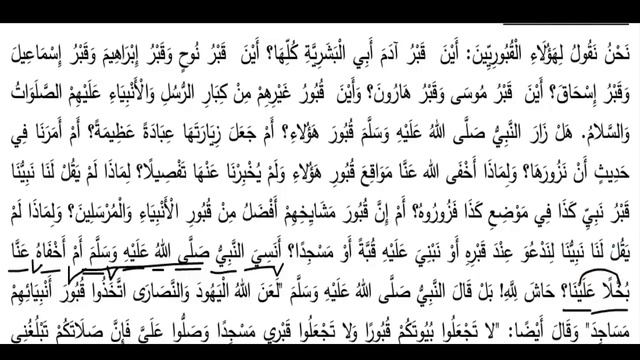 نَحْنُ نَقُولُ لِهَؤُلَاءِ الْقُبُورِيِّينَ: أَيْنَ قَبْرُ آدَمَ أَبِي الْبَشَرِيَّةِ كُلِّهَا؟ أَيْنَ قَبْرُ نُوحٍ وَقَبْرُ إِبْرَاهِيمَ وَقَبْرُ إِسْمَاعِيلَ
وَقَبْرُ إِسْحَاقَ؟ أَيْنَ قَبْرُ مُوسَى وَقَبْرُ هَارُونَ؟ وَأَيْنَ قُبُورُ غَيْرِهِمْ مِنْ كِبَارِ الرُّسُلِ وَالْأَنْبِيَاءِ عَلَيْهِمُ الصَّلَوَاتُ
وَالسَّلَامُ. هَلْ زَارَ النَّبِيُّ صَلَّى اللهُ عَلَيْهِ وَسَلَّمَ قُبُورَ هَؤُلَاءِ؟ أَمْ جَعَلَ زِيَارَتَهَا عِبَادَةً عَظِيمَةً؟ أَمْ أَمَرَنَا فِي
حَدِيثٍ أَنْ نَزُورَهَا؟ وَلِمَاذَا أَخْفَى الله عَنَّا مَوَاقِعَ قُبُورِ هَؤُلَاءِ وَلَمْ يُخْبِرْنَا عَنْهَا تَفْصِيلًا؟ لِمَاذَا لَمْ يَقُلْ لَنَا نَبِيُّنَا
قَبْرُ نَبِيِّ كَذَا فِي مَوْضِعِ كَذَا فَزُورُوهُ؟ أَمْ إِنَّ قُبُورَ مَشَايِخِهِمْ أَفْضَلُ مِنْ قُبُورِ الْأَنْبِيَاءِ وَالْمُرْسَلِينَ؟ وَلِمَاذَا لَمْ
يَقُلْ لَنَا نَبِيُّنَا لِنَدْعُوَ عِنْدَ قَبْرِهِ أَوْ نَبْنِيَ عَلَيْهِ قُبَّةً أَوْ مَسْجِدًا؟ أَنَسِيَ النَّبِيُّ صَلَّى اللهُ عَلَيْهِ وَسَلَّمَ أَمْ أَخْفَاهُ عَنَّا
بُخْلًا عَلَيْنَا؟ حَاشَ لِلَّهِ! بَلْ قَالَ النَّبِيُّ صَلَّى اللهُ عَلَيْهِ وَسَلَّمَ "لَعَنَ اللهُ الْيَهُودَ وَالنَّصَارَى اتَّخَذُوا قُبُورَ أَنْبِيَائِهِمْ
مَسَاجِدَ" وَقَالَ أَيْضًا: "لَا تَجْعَلُوا بُيُوتَكُمْ قُبُورًا وَلَا تَجْعَلُوا قَبْرِي مَسْجِدًا وَصَلُّوا عَلَيَّ فَإِنَّ صَلَاتَكُمْ تَبْلُغُنِي